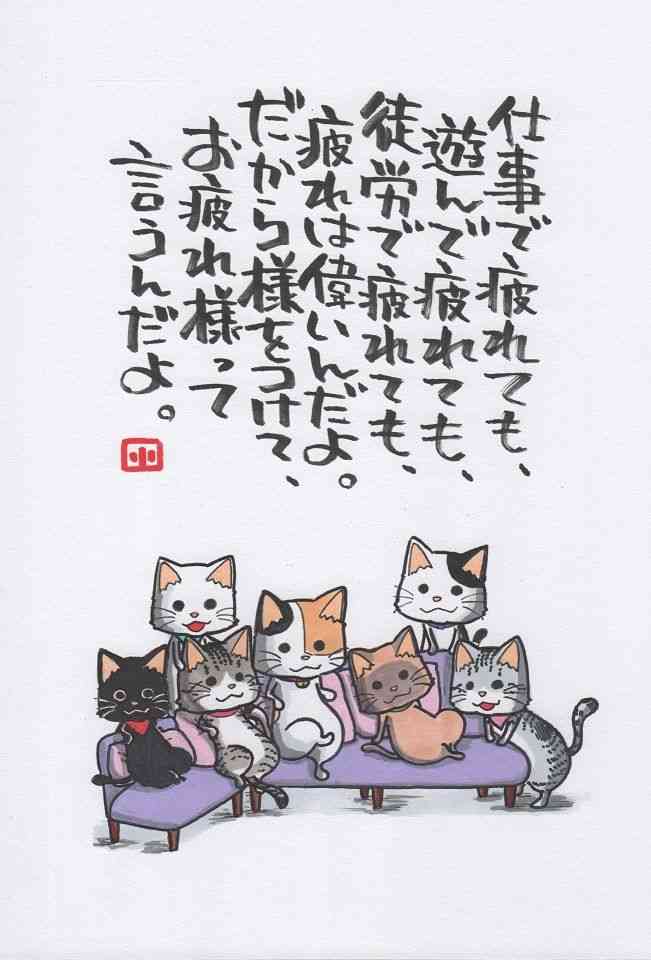 仕事で疲れても、
遊んで疲れても、
徒労で疲れても、
疲れは偉いんだよ。
だから様をつけて、
お疲れ様って
言うんだよ。